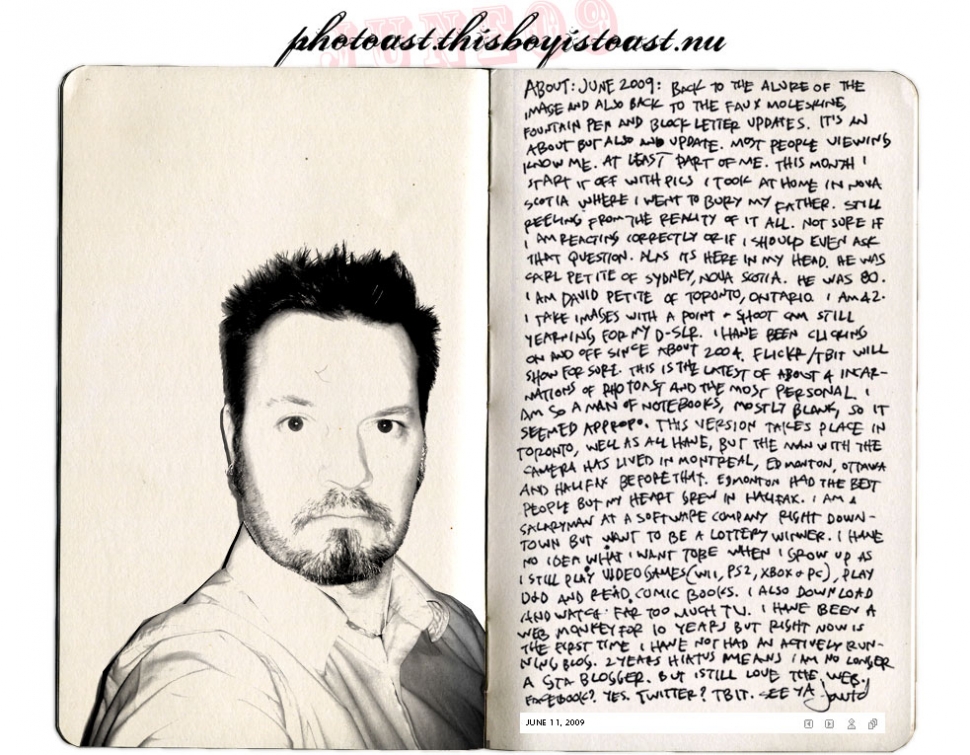 JUNE09
photoast.thisboyistoast.nu
ABOUT: JUNE 2009: BACK TO THE ALURE OF THE
IMAGE AND ALSO BACK TO THE FAUX MOLESKINE,
FOUNTAIN PEN AND BLOCK LETTER UPDATES. IT'S AN
ABOUT BUT ALSO AND UPDATE. MOST PEOPLE VIEWING
KNOW ME. AT LEAST PART OF ME. THIS MONTH I
START IT OFF WITH PICS I TOOK AT HOME IN NOVA
SCOTIA WHERE I WENT TO BURY MY FATHER. STILL
REELING FROM THE REALITY OF IT ALL. NOT SURE IF
I AM REACTING CORRECTLY OR IF I SHOULD EVEN ASK
THAT QUESTION. ALAS ITS HERE IN MY HEAD. HE WAS
CARL PETITE OF SYDNEY, NOVA SCOTIA. HE WAS 80.
I AM DAVID PETITE OF TORONTO, ONTARIO. I AM 42.
I TAKE IMAGES WITH A POINT + SHOOT CAM STILL
YEARNING FOR MY D-SLR. I HAVE BEEN CLICKING
ON AND OFF SINCE ABOUT 2004. FLICKR/TBIT WILL
SHOW FOR SURE. THIS IS THE LATEST OF ABOUT 4 INCAR-
NATIONS OF PHOTOAST AND THE MOST PERSONAL. I
AM SO A MAN OF NOTEBOOKS, MOSTLY BLANK, SO IT
SEEMED APPROPO. THIS VERSION TAKES PLACE IN
TORONTO, WELL AS ALL HAVE, BUT THE MAN WITH THE
CAMERA HAS LIVED IN MONTREAL, EDMONTON, OTTAWA
AND HALIFAX BEFORE THAT. EDMONTON HAD THE BEST
PEOPLE BUT MY HEART GREW IN HALIFAX. I AM A
SALARYMAN AT A SOFTWARE COMPANY RIGHT DOWN-
TOWN BUT WANT TO BE A LOTTERY WINNER. I HAVE
NO IDEA WHAT I WANT TO BE WHEN I GROW UP AS
I STILL PLAY VIDEO GAMES (WII, PS2, XBOX + PC), PLAY
D&D AND READ COMIC BOOKS. I ALSO DOWNLOAD
AND WATCH FAR TOO MUCH TV. I HAVE BEEN A
WEB MONKEY FOR 10 YEARS BUT RIGHT NOW IS
THE FIRST TIME I HAVE NOT HAD AN ACTIVELY RUN-
NING BLOG. 2 YEARS HIATUS MEANS I AM NO LONGER
A STA BLOGGER. BUT I STILL LOVE THE WEB.
FACEBOOK? YES. TWITTER? TBIT. SEE YA David
JUNE 11, 2009